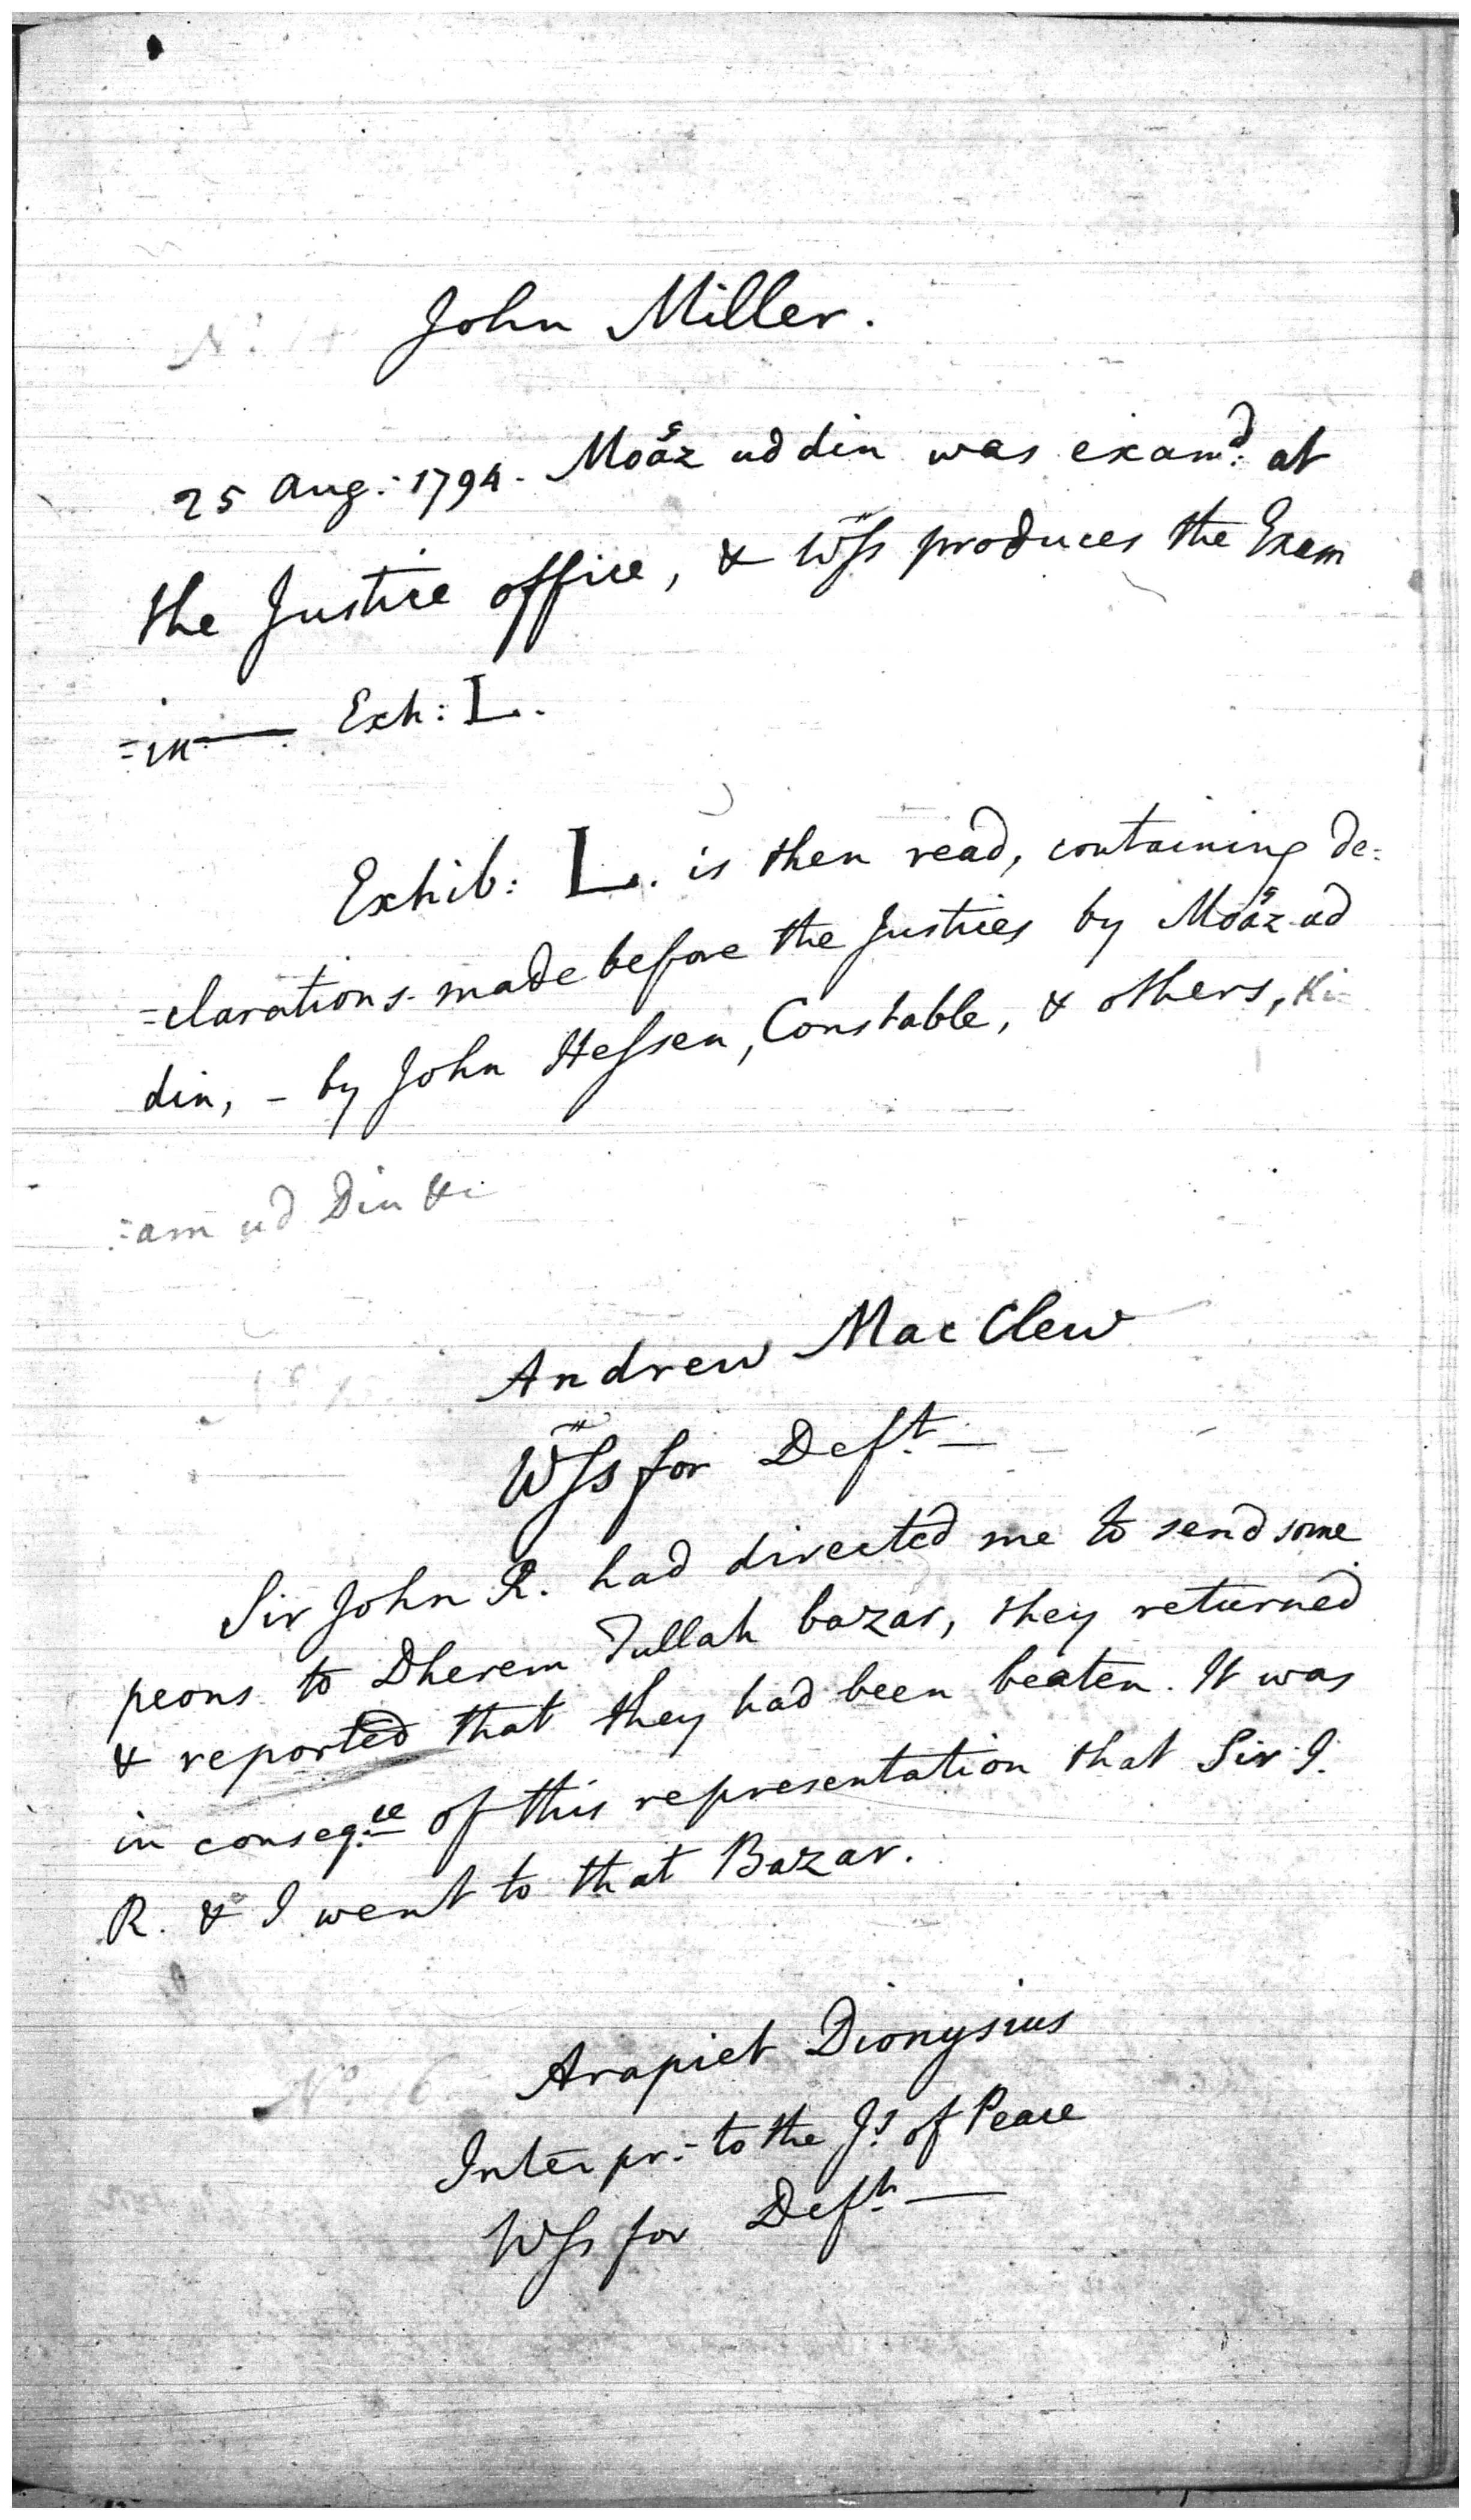 John Miller.
25 Aug: 1794. Moåz ud din was examd: at
the Justice office, & Wss produces the Exam
=in— Exh: L.
Exhib: L. is then read, containing de=
=clarations made before the Justices by Moåz ud
din, - by John Hessen, Constable, & others, Ki=
=am ud Din &c
Andrew Mac Clew
Wss for Deft—
Sir John R. had directed me to send some
peons to Dherem Tullah bazar, they returned
& reported that they had been beaten. It was
in conseq:ce of this representation that Sir J.
R. & I went to that Bazar.
Arapiet Dionysius
No 16
Interpr: to the Js of Peace
Wss for Deft—